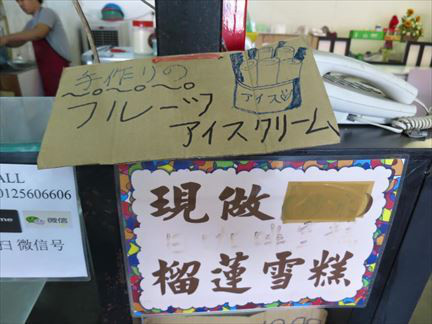 手作りの
フルーツ
アイスクリーム
アイス
ALL
0125606606
微信
扫 微信号
現做
榴蓮雪糕